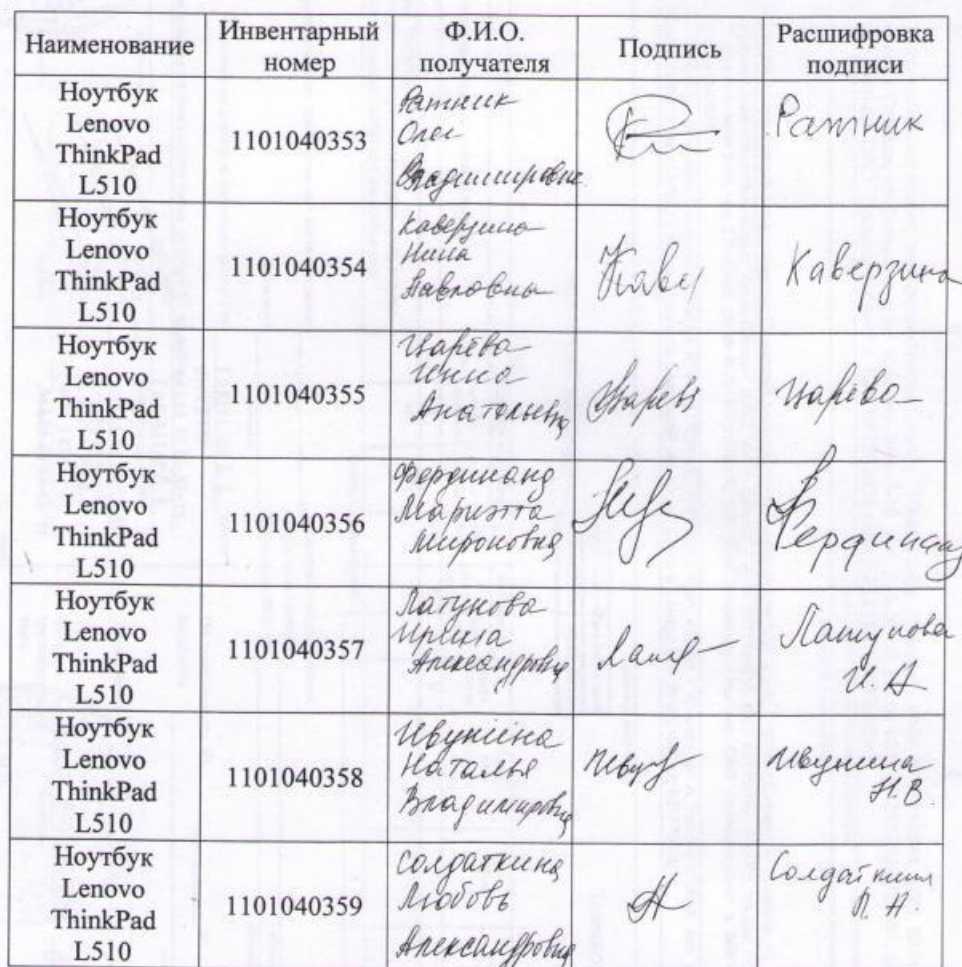 Наименование
Инвентарный номер
Ф.И.О. получателя
Подпись
Расшифровка подписи
Ноутбук
Lenovo
ThinkPad
L510
1101040353
Ратник
Олег
Владимирович
Ратник
Ноутбук
Lenovo
ThinkPad
L510
1101040354
Каверзина
Нина
Павловна
Каверзина
Ноутбук
Lenovo
ThinkPad
L510
1101040355
Царёва
Анатольевна
Царёва
Ноутбук
Lenovo
ThinkPad
L510
1101040356
Фердинанд
Мариэтта
Мироновна
Фердинанд
Ноутбук
Lenovo
ThinkPad
L510
1101040357
Латунова
Ирина
Александровна
Латунова
И.А
Ноутбук
Lenovo
ThinkPad
L510
1101040358
Ивунина
Наталья
Владимировна
Ивунина
Н.В.
Ноутбук
Lenovo
ThinkPad
L510
1101040359
Солдаткина
Любовь
Александровна
Солдаткина
Л.А.